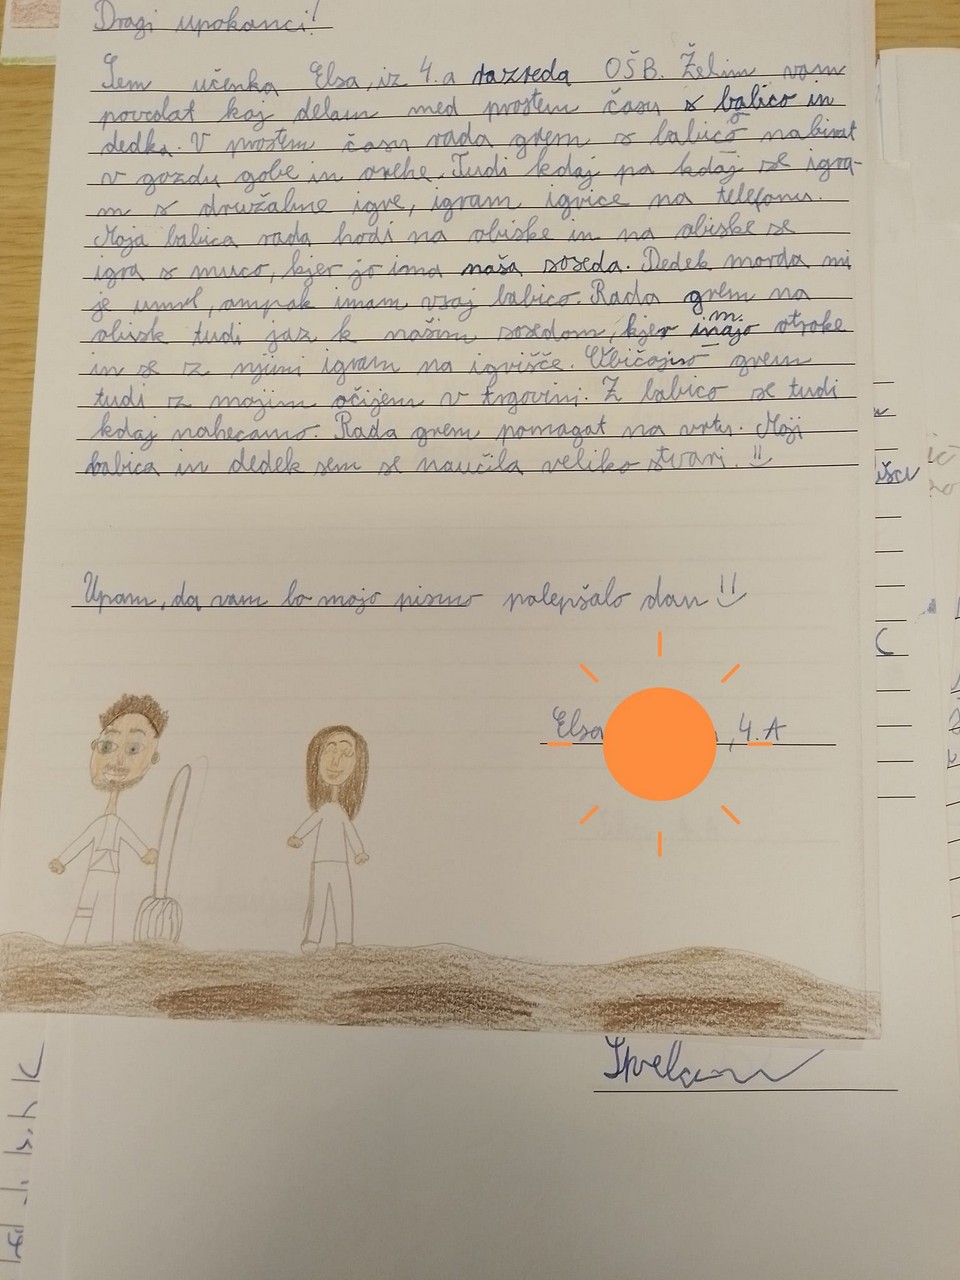 Dragi upokanci!
Sem učenka Elsa, iz 4. a razreda OŠB. Želim vam
povedat kaj delam med prostem času z babico in
dedka. V prostem času rada grem z babico nabirat
v gozdu gobe in orehe. Tudi kdaj pa kdaj se igra-
m z družabne igre, igram igrice na telefonu.
Moja babica rada hodi na obiske in na obiske se
igra z muco, kjer jo ima naša soseda. Dedek morda mi
je umrl, ampak imam vsaj babico. Rada grem na
obisk tudi jaz k našim sosedom, kjer imajo otroke
in se z njimi igram na igrišče. Običajno grem
tudi z mojim očijem v trgovini. Z babico se tudi
kdaj nahecamo. Rada grem pomagat na vrtu. Moji
babica in dedek sem se naučila veliko stvari. !!
Upam, da vam bo mojo pismo polepšalo dan !!
Elsa , 4. A